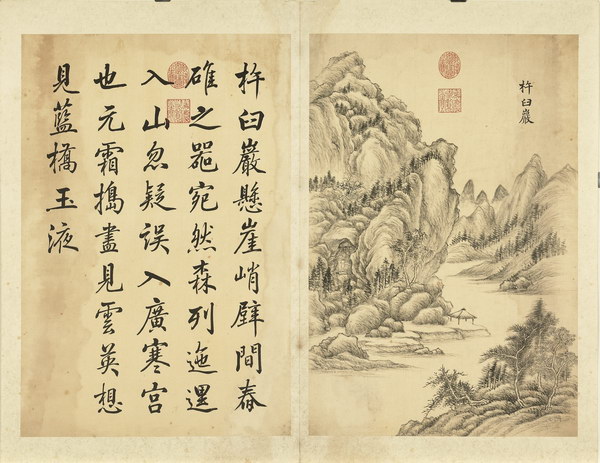 杵臼巖
杵臼巖懸崖峭壁間舂
碓之噐宛然森列迤邐
入山忽疑誤入廣寒宮
也元霜搗盡見雲英想
見藍橋玉液